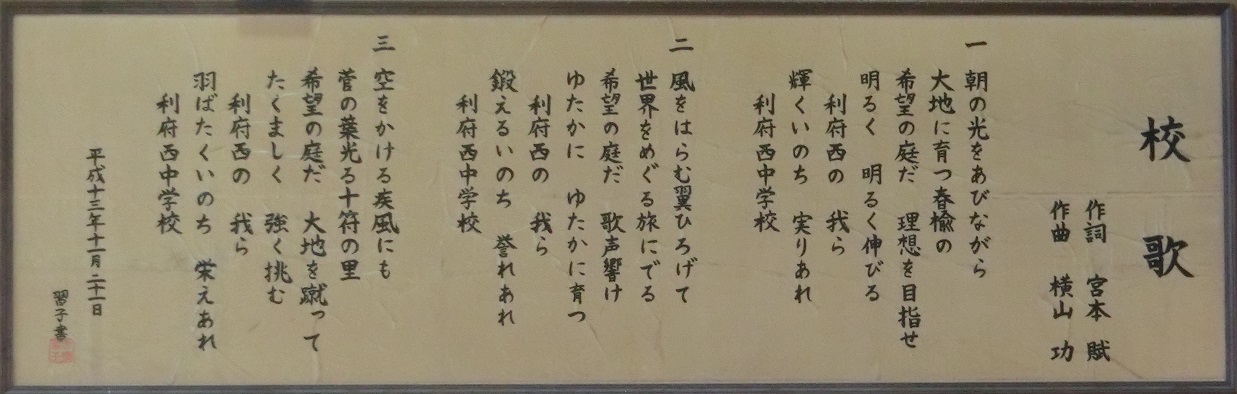 校歌
作詞 宮本 賦
作曲 横山 功
一 朝の光をあびながら
大地に育つ春楡の
希望の庭だ 理想を目指せ
明るく 明るく伸びる
利府西の 我ら
輝くいのち 実りあれ
利府西中学校
二 風をはらむ翼ひろげて
世界をめぐる旅にでる
希望の庭だ 歌声響け
ゆたかに ゆたかに育つ
利府西の 我ら
鍛えるいのち 誉れあれ
利府西中学校
三 空をかける疾風にも
菅の葉光る十符の里
希望の庭だ 大地を蹴って
たくましく 強く挑む
利府西の 我ら
羽ばたくいのち 栄えあれ
利府西中学校
平成十三年十一月二十一日
習子書